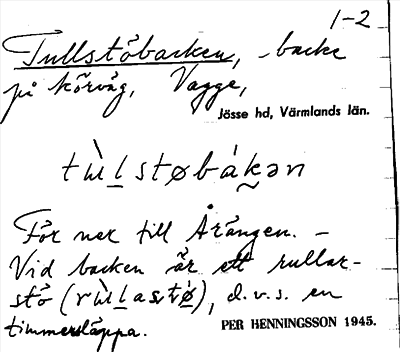 1-2
Tullstöbacken, -backe
på körväg, Vagge,
Jösse hd, Värmlands län.
tùlstøbákən
För ner till Årängen. -
Vid backen är ett rullar-
stö (rùlastø), d.v.s. en
timmersläppa.
PER HENNINGSSON 1945.